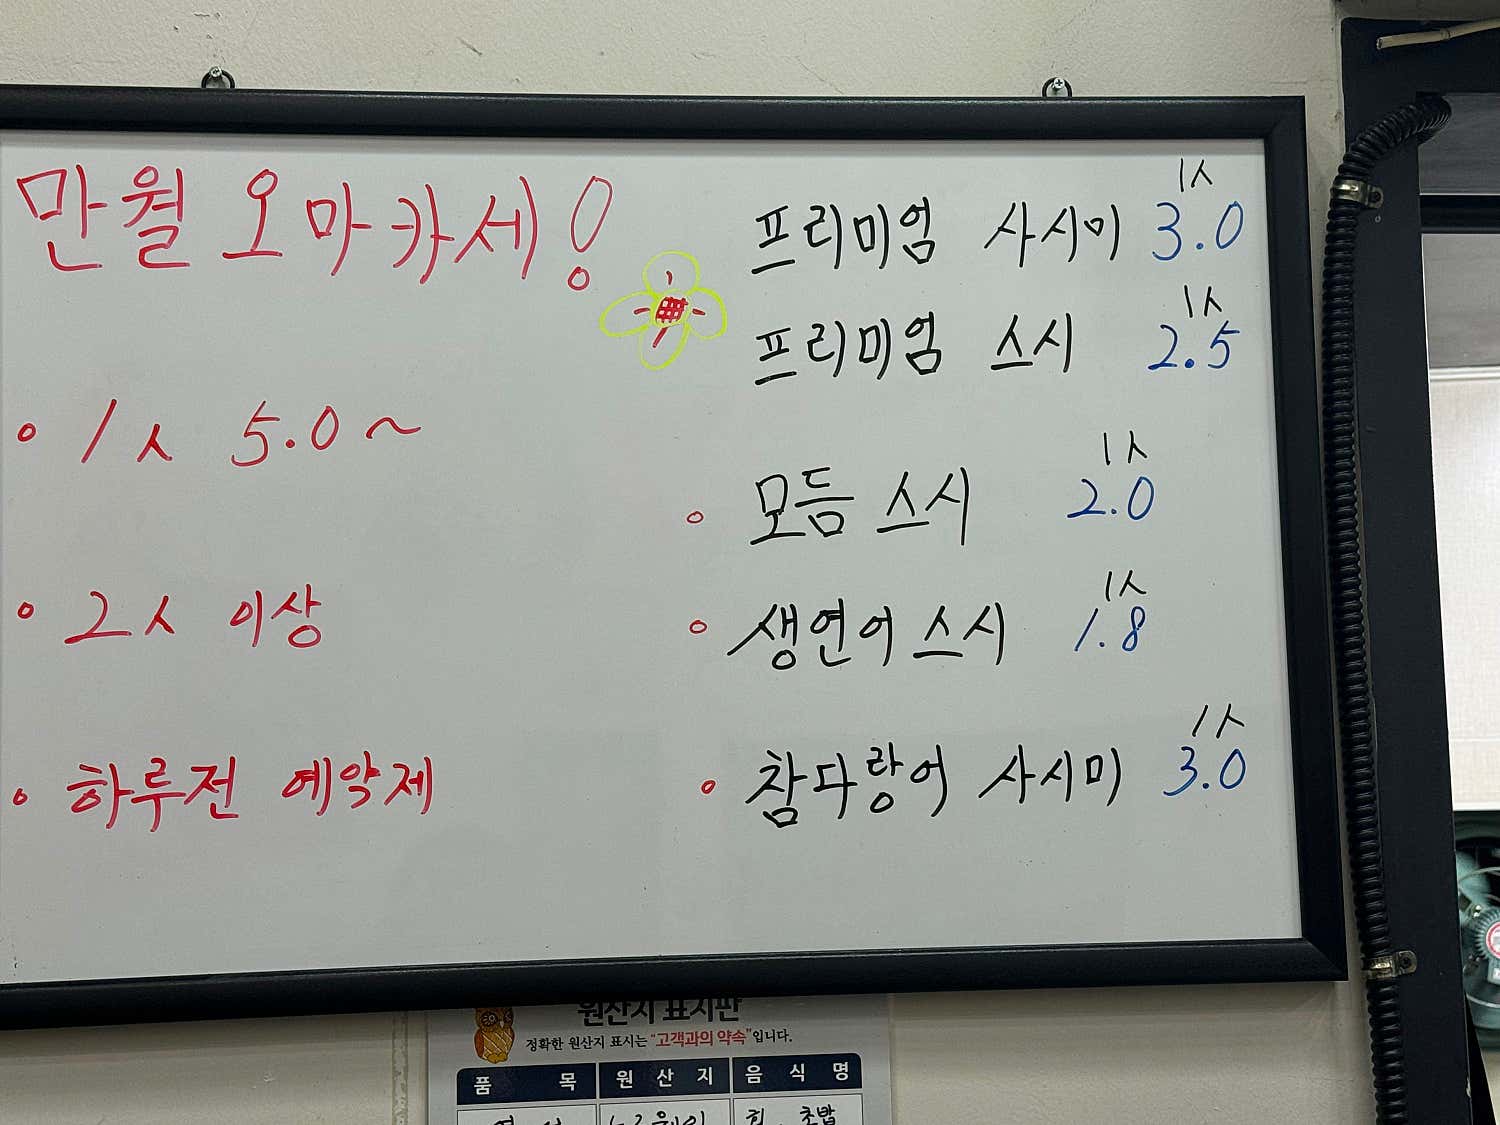 만월 오마카세!
• 1人 5.0~
• 2人 이상
• 하루전 예약제
프리미엄 사시미 1人 3.0
프리미엄 스시 1人 2.5
• 모듬 스시 1人 2.0
• 생연어 스시 1人 1.8
• 참다랑어 사시미 1人 3.0
원산지 표시판
정확한 원산지 표시는 "고객과의 약속"입니다.
품 목 원 산 지 음 식 명
회, 초밥